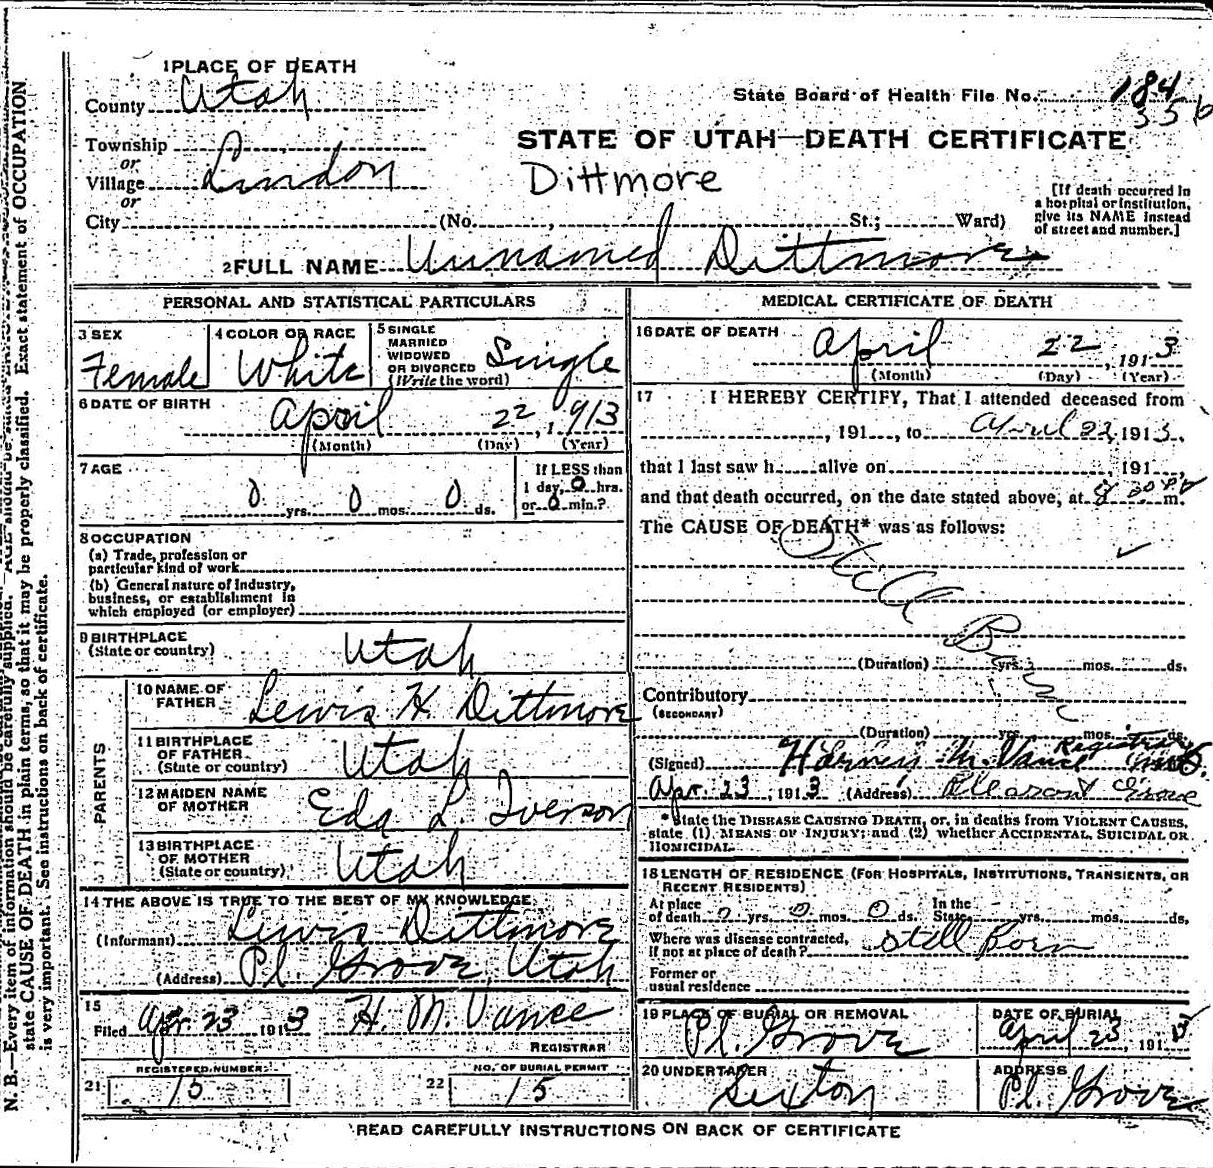 1 PLACE OF DEATH
County Utah
State Board of Health File No. 184
356
Township
or
Village Lindon
or
City (No. , St.; Ward)
STATE OF UTAH—DEATH CERTIFICATE
Dittmore
[If death occurred in
a hospital or institution,
give its NAME instead
of street and number.]
2 FULL NAME Unnamed Dittmore
PERSONAL AND STATISTICAL PARTICULARS
3 SEX
Female
4 COLOR OR RACE
White
5 SINGLE
MARRIED
WIDOWED
OR DIVORCED
(Write the word)
Single
6 DATE OF BIRTH
April 22, 1913
(Month) (Day) (Year)
7 AGE
0 yrs. 0 mos. 0 ds.
If LESS than
1 day, 0 hrs.
or 0 min.?
8 OCCUPATION
(a) Trade, profession or
particular kind of work
(b) General nature of industry,
business, or establishment in
which employed (or employer)
9 BIRTHPLACE
(State or country) Utah
PARENTS
10 NAME OF
FATHER Lewis H Dittmore
11 BIRTHPLACE
OF FATHER
(State or country) Utah
12 MAIDEN NAME
OF MOTHER Eda L. Iverson
13 BIRTHPLACE
OF MOTHER
(State or country) Utah
14 THE ABOVE IS TRUE TO THE BEST OF MY KNOWLEDGE
(Informant) Lewis Dittmore
(Address) Pl. Grove, Utah
15
Filed Apr. 23 1913 H. M. Vance
REGISTRAR
REGISTERED NUMBER
21 15
NO. OF BURIAL PERMIT
22 15
MEDICAL CERTIFICATE OF DEATH
16 DATE OF DEATH
April 22, 1913
(Month) (Day) (Year)
17 I HEREBY CERTIFY, That I attended deceased from
, 191 , to April 22, 1913,
that I last saw h alive on , 191 ,
and that death occurred, on the date stated above, at 8 30 P m.
The CAUSE OF DEATH* was as follows:
Still Born
(Duration) yrs. mos. ds.
Contributory
(SECONDARY)
(Duration) yrs. mos. ds.
Registrar
(Signed) M. Vance
Apr. 23, 1913 (Address) Pleasant Grove
*State the DISEASE CAUSING DEATH, or, in deaths from VIOLENT CAUSES,
state (1) MEANS OF INJURY; and (2) whether ACCIDENTAL, SUICIDAL OR
HOMICIDAL.
18 LENGTH OF RESIDENCE (FOR HOSPITALS, INSTITUTIONS, TRANSIENTS, OR
RECENT RESIDENTS)
At place
of death 0 yrs. 0 mos. 0 ds. In the
State yrs. mos. ds.
Where was disease contracted,
if not at place of death? Still Born
Former or
usual residence
19 PLACE OF BURIAL OR REMOVAL
Pl. Grove
DATE OF BURIAL
April 23, 1913
20 UNDERTAKER
Sexton
ADDRESS
Pl. Grove
READ CAREFULLY INSTRUCTIONS ON BACK OF CERTIFICATE
N. B.—Every item of information should be carefully supplied. AGE should be
state CAUSE OF DEATH in plain terms, so that it may be properly classified. Exact statement of OCCUPATION
is very important. See instructions on back of certificate.